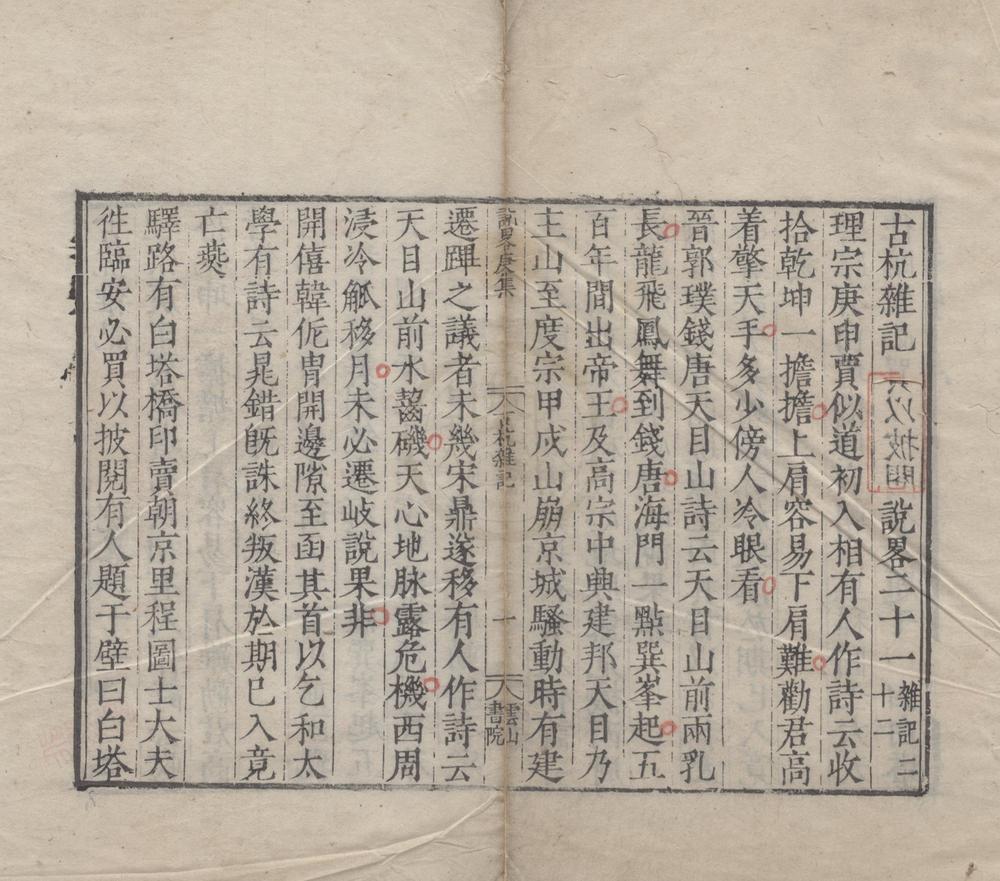 古杭雜記 說畧二十一 雜記二十二
理宗庚申賈似道初入相有人作詩云收
拾乾坤一擔擔上肩容易下肩難勸君高
着擎天手多少傍人冷眼看
晉郭璞錢唐天目山詩云天目山前兩乳
長龍飛鳳舞到錢唐海門一點巽峯起五
百年間出帝王及高宗中興建邦天目乃
主山至度宗甲戌山崩京城騷動時有建
說畧庚集 古杭雜記 十 雲山書院
遷蹕之議者未幾宋鼎遂移有人作詩云
天目山前水齧磯天心地脉露危機西周
浸冷觚移月未必遷岐說果非
開僖韓侂胄開邊隙至函其首以乞和太
學有詩云晁錯旣誅終叛漢於期已入竟
亡燕
驛路有白塔橋印賣朝京里程圖士大夫
徃臨安必買以披閱有人題于壁曰白塔